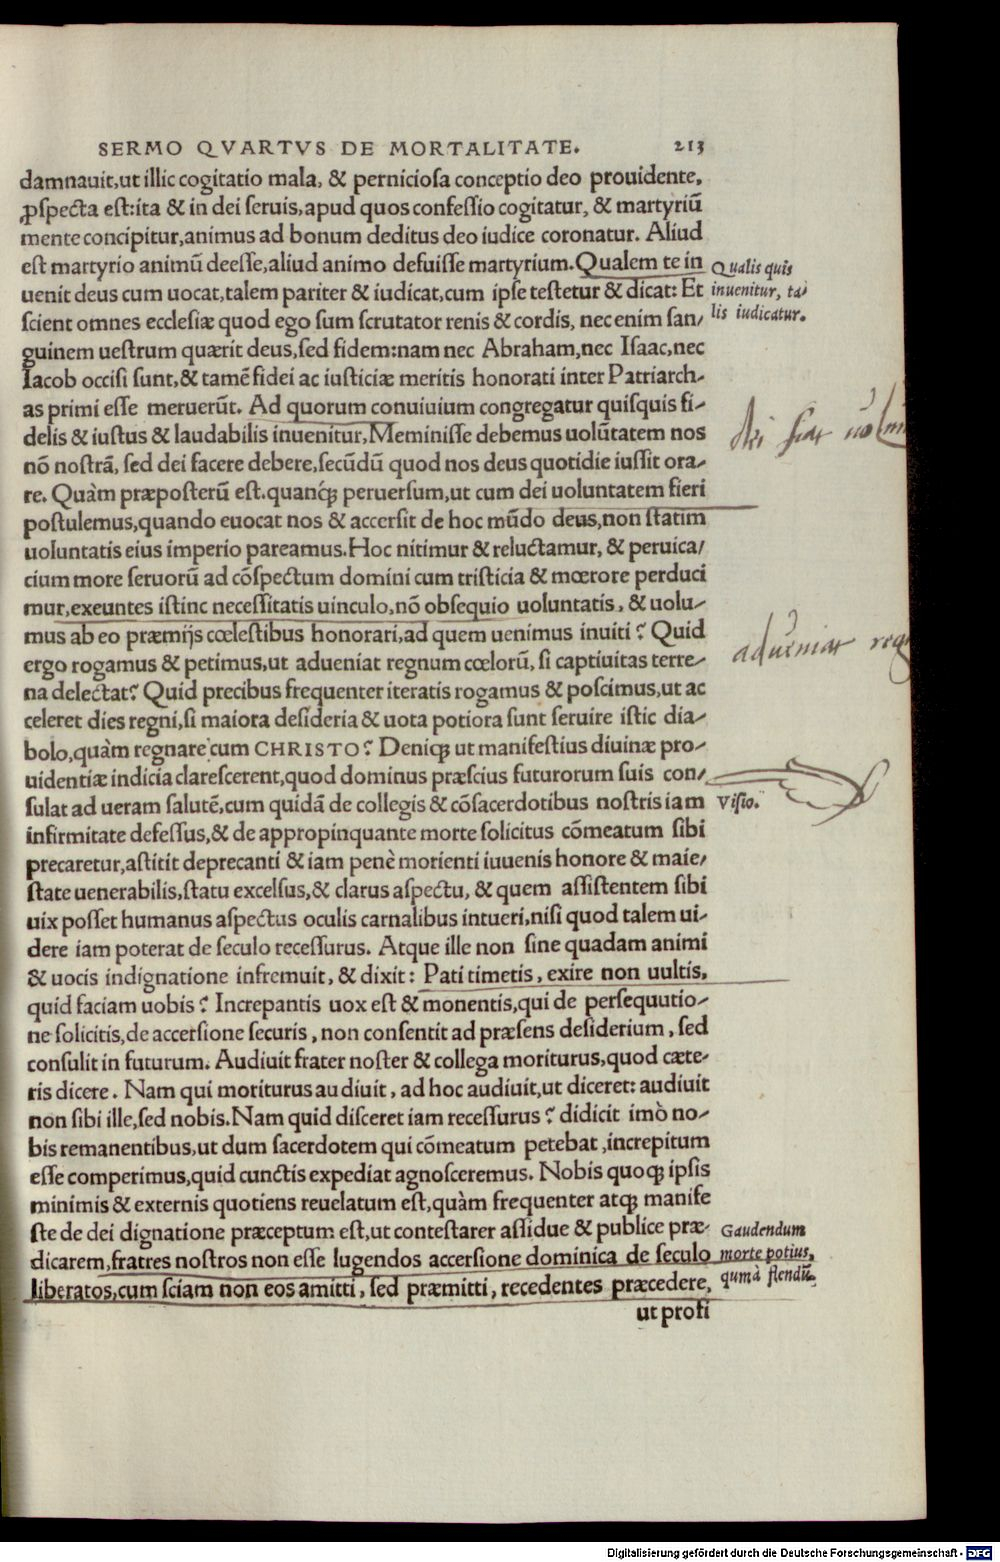 SERMO QVARTVS DE MORTALITATE. 213
damnauit,ut illic cogitatio mala, & perniciosa conceptio deo prouidente,
ꝓspecta est:ita & in dei seruis,apud quos confessio cogitatur, & martyriũ
mente concipitur,animus ad bonum deditus deo iudice coronatur. Aliud
est martyrio animũ deesse,aliud animo defuisse martyrium.Qualem te in
uenit deus cum uocat,talem pariter & iudicat,cum ipse testetur & dicat: Et
scient omnes ecclesiæ quod ego sum scrutator renis & cordis, nec enim san/
guinem uestrum quærit deus,sed fidem:nam nec Abraham,nec Isaac,nec
Iacob occisi sunt,& tamẽ fidei ac iusticiæ meritis honorati inter Patriarch-
as primi esse meruerũt. Ad quorum conuiuium congregatur quisquis fi-
delis & iustus & laudabilis inuenitur,Meminisse debemus uolũtatem nos
nõ nostrã, sed dei facere debere,secũdũ quod nos deus quotidie iussit ora-
re. Quàm præposterũ est.quanq́ꝫ peruersum,ut cum dei uoluntatem fieri
postulemus,quando euocat nos & accersit de hoc mũdo deus,non statim
uoluntatis eius imperio pareamus.Hoc nitimur & reluctamur, & peruica/
cium more seruorũ ad cõspectum domini cum tristicia & mœrore perduci
mur,exeuntes istinc necessitatis uinculo,nõ obsequio uoluntatis, & uolu-
mus ab eo præmijs cœlestibus honorari,ad quem uenimus inuiti? Quid
ergo rogamus & petimus,ut adueniat regnum cœlorũ, si captiuitas terre-
na delectat? Quid precibus frequenter iteratis rogamus & poscimus,ut ac
celeret dies regni,si maiora desideria & uota potiora sunt seruire istic dia-
bolo,quàm regnare cum CHRISTO? Deniqꝫ ut manifestius diuinæ pro-
uidentiæ indicia clarescerent,quod dominus præscius futurorum suis con/
sulat ad ueram salutẽ,cum quidã de collegis & cõsacerdotibus nostris iam
infirmitate defessus,& de appropinquante morte solicitus cõmeatum sibi
precaretur,astitit deprecanti & iam penè morienti iuuenis honore & maie/
state uenerabilis,statu excelsus,& clarus aspectu, & quem assistentem sibi
uix posset humanus aspectus oculis carnalibus intueri,nisi quod talem ui-
dere iam poterat de seculo recessurus. Atque ille non sine quadam animi
& uocis indignatione infremuit, & dixit: Pati timetis, exire non uultis,
quid faciam uobis? Increpantis uox est & monentis,qui de persequutio-
ne solicitis,de accersione securis, non consentit ad præsens desiderium, sed
consulit in futurum. Audiuit frater noster & collega moriturus,quod cæte-
ris dicere. Nam qui moriturus audiuit, ad hoc audiuit,ut diceret: audiuit
non sibi ille,sed nobis.Nam quid disceret iam recessurus? didicit imò no-
bis remanentibus,ut dum sacerdotem qui cõmeatum petebat,increpitum
esse comperimus,quid cunctis expediat agnosceremus. Nobis quoqꝫ ipsis
minimis & externis quotiens reuelatum est,quàm frequenter atqꝫ manife
ste de dei dignatione præceptum est,ut contestarer assidue & publice præ-
dicarem,fratres nostros non esse lugendos accersione dominica de seculo
liberatos,cum sciam non eos amitti, sed præmitti, recedentes præcedere,
ut profi
Qualis quis
inuenitur, ta/
lis iudicatur.
fiat
adueniat
Visio.
Gaudendum
morte potius,
qumã flendũ.
Digitalisierung gefördert durch die Deutsche Forschungsgemeinschaft - DFG